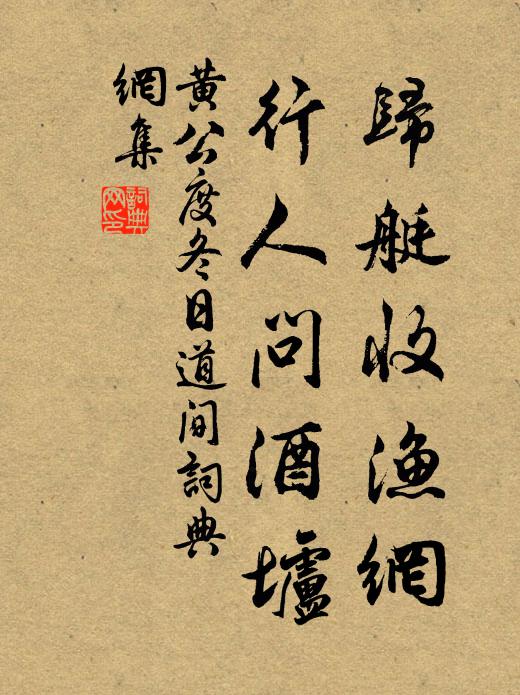 歸艇收漁網
行人問酒壚
黃公度冬日道间詞典
網集
詞典
网印